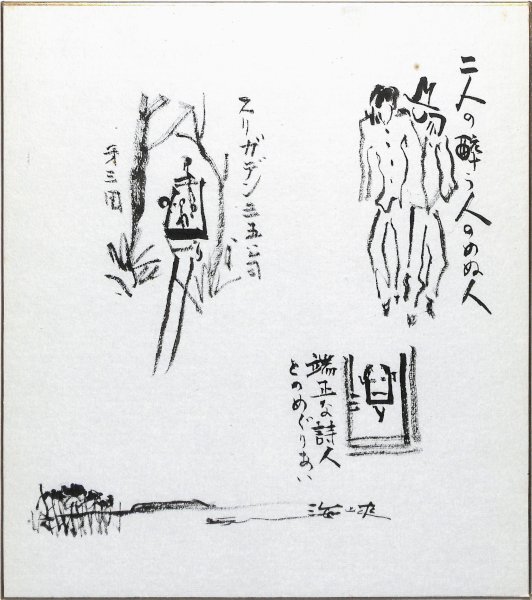 二人の酔う人のめぬ人
エリガデン
第三回
端正な詩人
とのめぐりあい
海峡